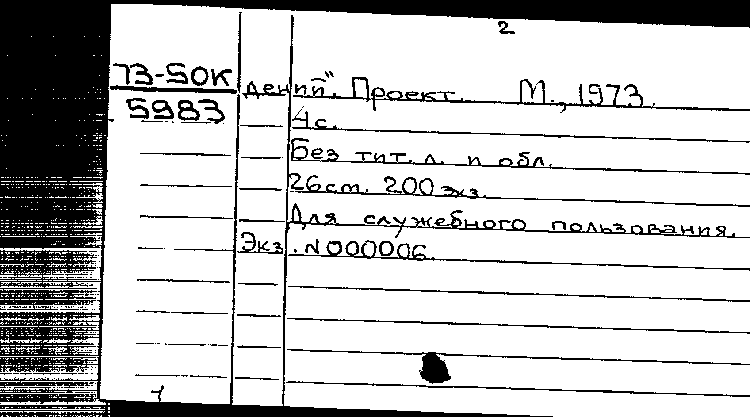 2
73-50К
5983
дений". Проект. М., 1973.
4с.
Без тит. л. и обл.
26см. 200 экз.
Для служебного пользования.
Экз. N000006.